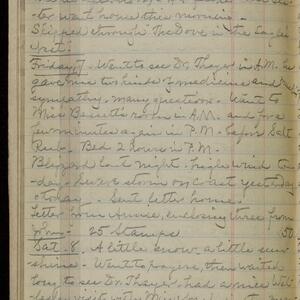 ter went home this morning.
Skipped through The Dove in the Eagle's
Nest.
Friday 7. Went to see Dr. Thayer in A.M. he
gave me two kinds of medicine and
sympathy. many questions. Went to
Miss Bassett's room in A.M. and for a
few minutes again in P.M. Salt
Rub. Bed 2 hours in P.M.
Blizzard last night. high wind to-
day. Severe storm on coast yesterday
& today. Sent letter home.
Letter from Annie, enclosing three from
John 25 Stamps 50
Sat. 8. A little snow, a little sun
shine. Went to prayers, then waited
long to see Dr. Thayer, had a nice
visit with Miss